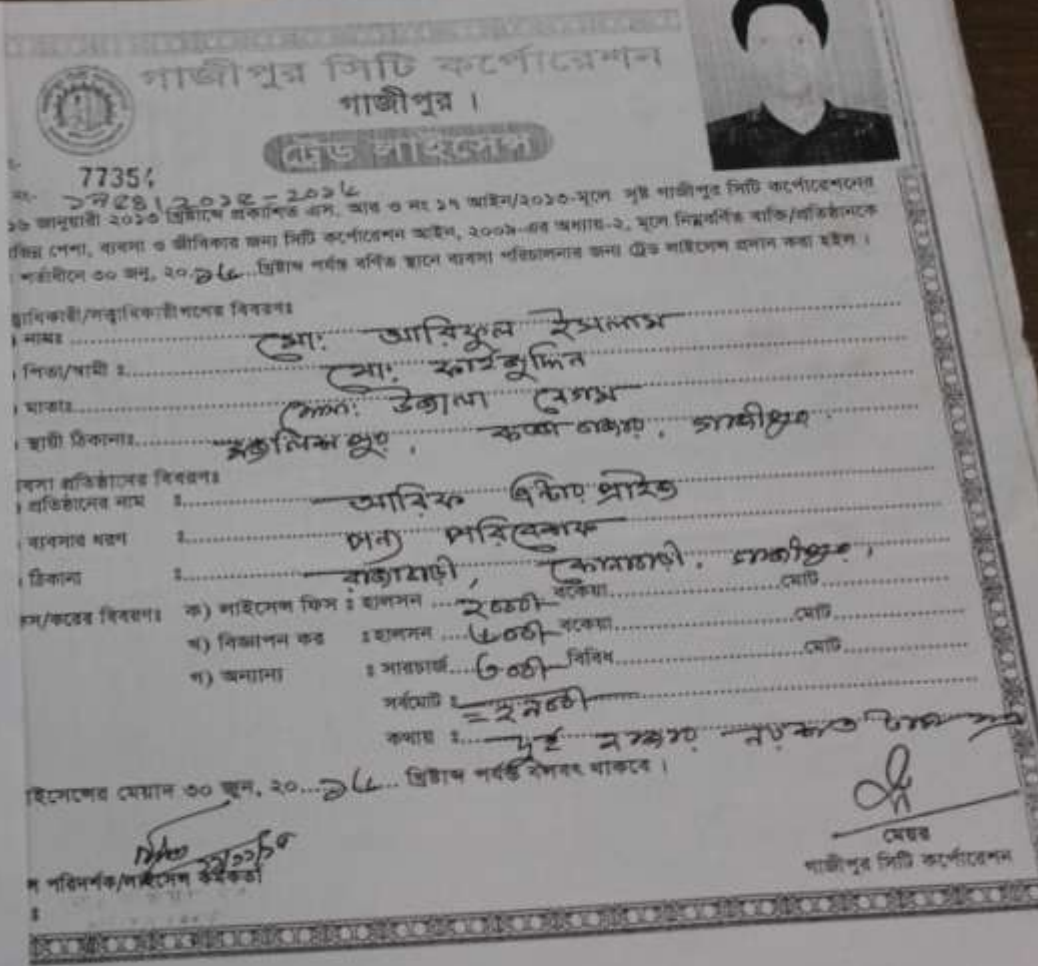 গাজীপুর সিটি কর্পোরেশন
গাজীপুর ।
ট্রেড লাইসেন্স
7735
নং- ২০১৫-২০১৬
১৬ জানুয়ারী ২০১৩ খ্রিষ্টাব্দে প্রকাশিত এস, আর ও নং ১৭ আইন/২০১৩-মূলে সৃষ্ট গাজীপুর সিটি কর্পোরেশনের
পেশা, ব্যবসা ও জীবিকার জন্য সিটি কর্পোরেশন আইন, ২০০৯-এর অধ্যায়-২, মূলে নিম্নবর্ণিত ব্যক্তি/প্রতিষ্ঠানকে
শর্তাধীনে ৩০ জুন, ২০.১৬...খ্রিষ্টাব্দ পর্যন্ত বর্ণিত স্থানে ব্যবসা পরিচালনার জন্য ট্রেড লাইসেন্স প্রদান করা হইল ।
ত্বাধিকারী/সত্ত্বাধিকারীগণের বিবরণঃ
নামঃ মো: আরিফুল ইসলাম
পিতা/স্বামী ঃ মো: ফাইজুদ্দিন
মাতাঃ মোসা: বেগম
স্থায়ী ঠিকানাঃ গাজীপুর
ব্যবসা প্রতিষ্ঠানের বিবরণঃ
প্রতিষ্ঠানের নাম ঃ আরিফ এন্টার প্রাইজ
ব্যবসার ধরণ ঃ পন্য পরিবেশক
ঠিকানা ঃ কোনাবাড়ী, গাজীপুর ।
ফিস/করের বিবরণঃ ক) লাইসেন্স ফিস ঃ হালসন ... ২০০০/- বকেয়া ... মোট
খ) বিজ্ঞাপন কর ঃ হালসন ... ৬০০/- বকেয়া ... মোট
গ) অন্যান্য ঃ সারচার্জ ... ৩০০/- বিবিধ ... মোট
সর্বমোট ঃ =২৯০০/-
কথায় ঃ দুই হাজার নয়শত টাকা মাত্র
ইসেন্সের মেয়াদ ৩০ জুন, ২০...১৬... খ্রিষ্টাব্দ পর্যন্ত বলবৎ থাকবে ।
মেয়র
স পরিদর্শক/লাইসেন্স কর্মকর্তা
গাজীপুর সিটি কর্পোরেশন